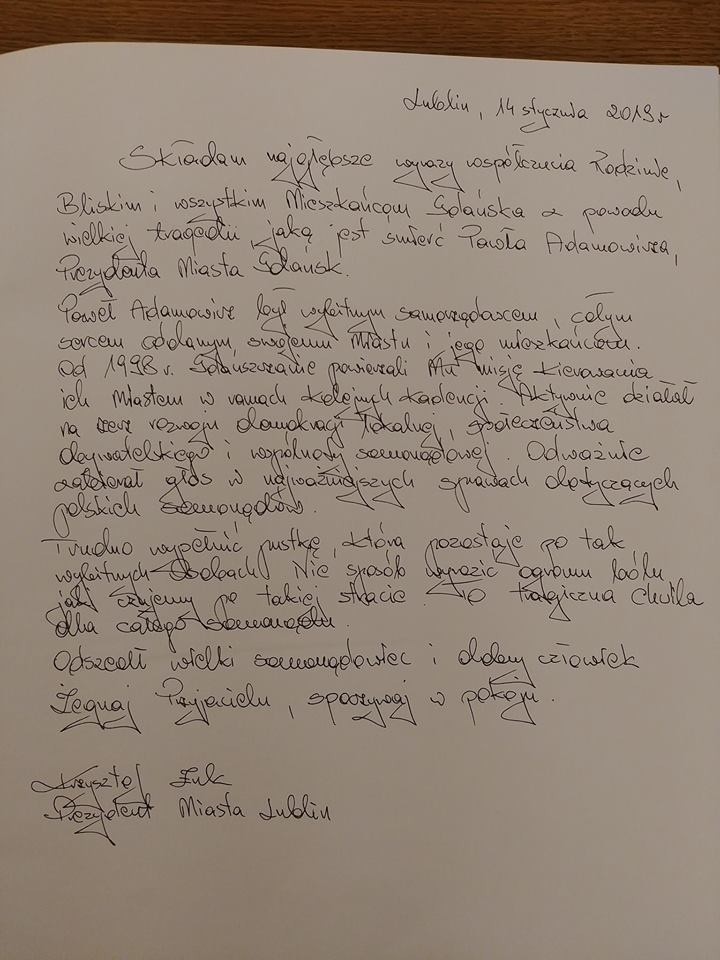 Lublin, 14 stycznia 2019 r
Składam najgłębsze wyrazy współczucia Rodzinie,
Bliskim i wszystkim Mieszkańcom Gdańska z powodu
wielkiej tragedii, jaką jest śmierć Pawła Adamowicza,
Prezydenta Miasta Gdańsk.
Paweł Adamowicz był wybitnym samorządowcem, całym
sercem oddanym swojemu Miastu i jego mieszkańcom.
Od 1998 r. Gdańszczanie powierzali Mu misję kierowania
ich Miastem w ramach kolejnych kadencji. Aktywnie działał
na rzecz rozwoju demokracji lokalnej, społeczeństwa
obywatelskiego i wspólnoty samorządowej. Odważnie
zabierał głos w najważniejszych sprawach dotyczących
polskich samorządów.
Trudno wypełnić pustkę, która pozostaje po tak
wybitnych Osobach. Nie sposób wyrazić ogromu bólu
jaki czujemy po takiej stracie. To tragiczna chwila
dla całego samorządu.
Odszedł wielki samorządowiec i oddany człowiek
Żegnaj Przyjacielu, spoczywaj w pokoju.
Krzysztof Żuk
Prezydent Miasta Lublin